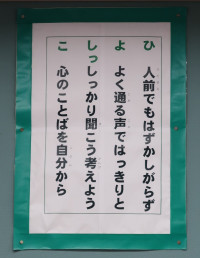 ひ 人前でもはずかしがらず
よ よく通る声ではっきりと
しっ しっかり聞こう考えよう
こ 心のことばを自分から